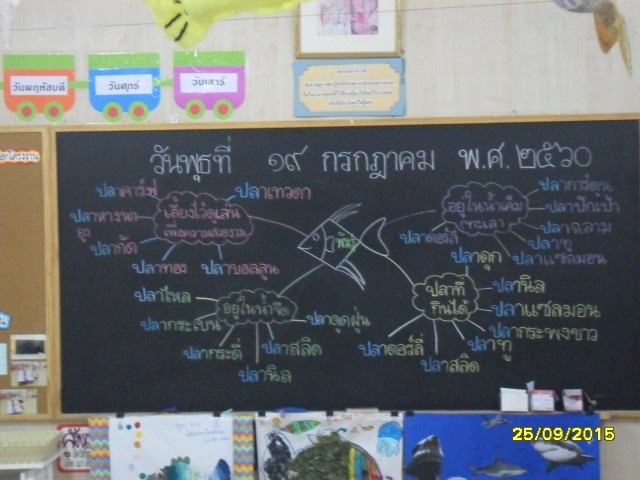 วันพฤหัสบดี
วันศุกร์
วันเสาร์
วันพุธที่ ๑๙ กรกฎาคม พ.ศ. ๒๕๖๐
ปลาคาร์ฟ
ปลาเทวดา
ปลาหางนก
ยูง
เลี้ยงไว้ดูเล่น
เพื่อความสวยงาม
ปลากัด
ปลาทอง
ปลาบอลลูน
พันธุ์
อยู่ในน้ำเค็ม
(ทะเล)
ปลาการ์ตูน
ปลาปักเป้า
ปลาฉลาม
ปลาทู
ปลาแซลมอน
ปลาดอร์ลี่
ปลาไหล
ปลากระเบน
อยู่ในน้ำจืด
ปลาดูดฝุ่น
ปลากระดี่
ปลานิล
ปลาสลิด
ปลาที่
กินได้
ปลาดุก
ปลานิล
ปลาแซลมอน
ปลากระพงขาว
ปลาทู
ปลาดอร์ลี่
ปลาสลิด
25/09/2015